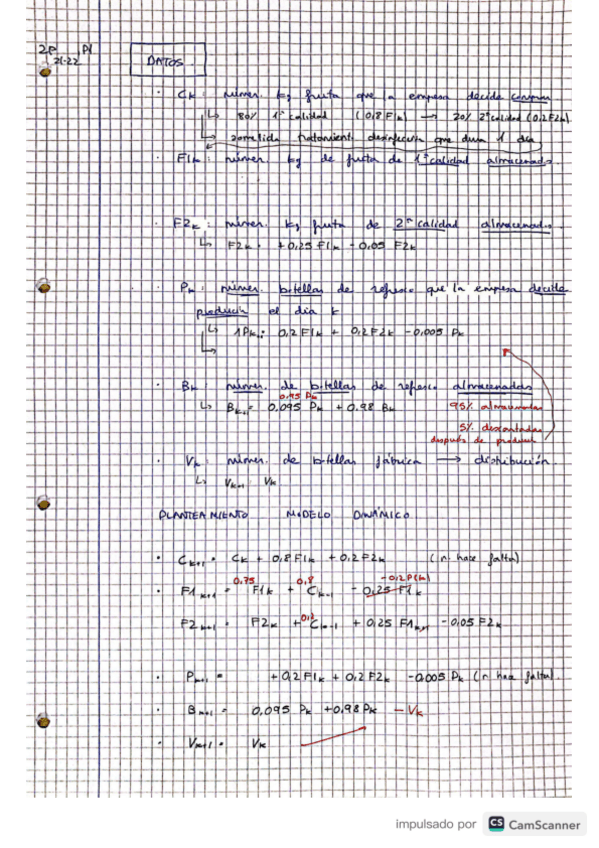 2P P1
21-22
DATOS
· Ck : númer. kg fruta que la empresa decide comprar
↳ 80% 1ª calidad (0,8 F1k) → 20% 2ª calidad (0,2 F2k)
↳ sometida tratamient. desinfección que dura 1 día
· F1k : númer. kg de fruta de 1ª calidad almacenada.
· F2k : númer. kg fruta de 2ª calidad almacenada.
↳ F2k = +0,25 F1k - 0,05 F2k
· Pk : númer. botellas de refresco que la empresa decide
producir el día k
↳ 1Pk+1 : 0,2 F1k + 0,2 F2k - 0,005 Pk
· Bk : númer. de botellas de refresco almacenadas
0,95 Pk
↳ Bk+1 = 0,095 Pk + 0,98 Bk 95% almacenadas
5% descartadas
después de producir
· Vk : númer. de botellas fábrica → distribución.
↳ Vk+1 = Vk
PLANTEAMIENTO MODELO DINÁMICO
· Ck+1 = Ck + 0,8 F1k + 0,2 F2k (n. hace falta)
0,75 0,8 - 0,2 P(k)
· F1k+1 = F1k + Ck-1 - 0,25 F1k
0,2
F2k+1 = F2k + Ck-1 + 0,25 F1k - 0,05 F2k
· Pk+1 = + 0,2 F1k + 0,2 F2k - 0,005 Pk (n. hace falta).
· Bk+1 = 0,095 Pk + 0,98 Pk - Vk
· Vk+1 = Vk
impulsado por CS CamScanner